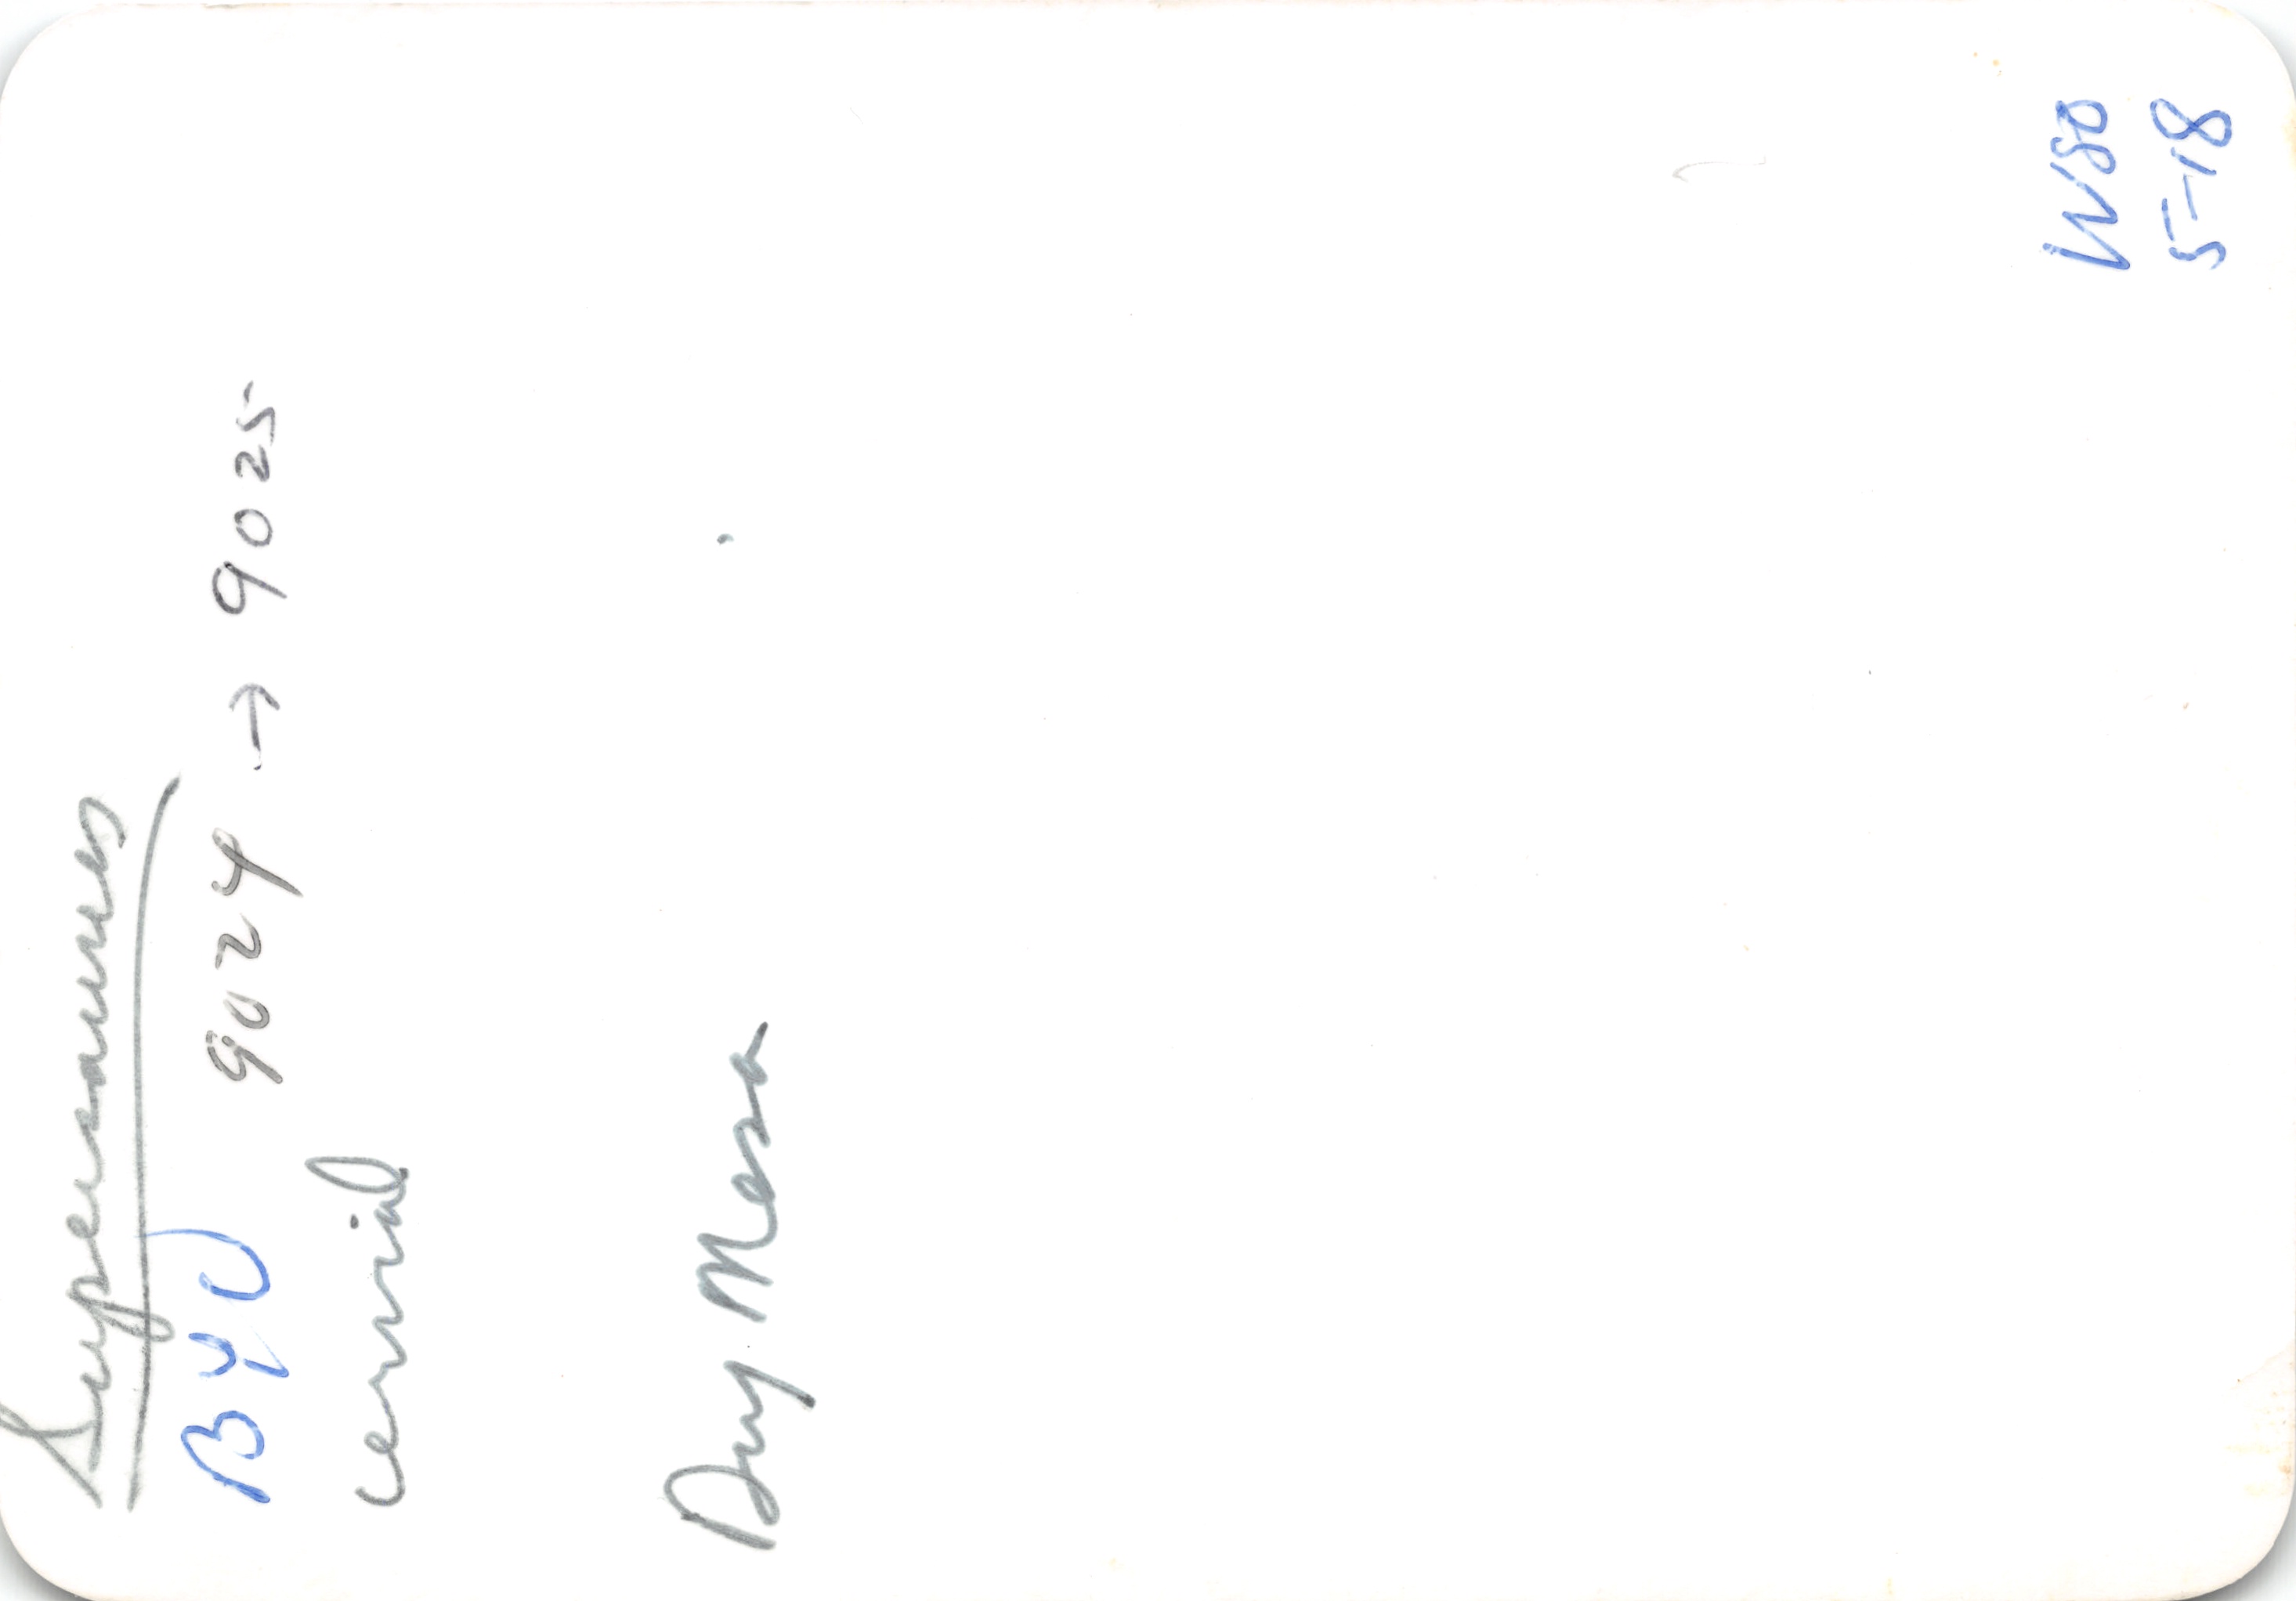 Supersaurus
BYU 9024 → 9025
cervical
Dry Mesa
W'80
5-18